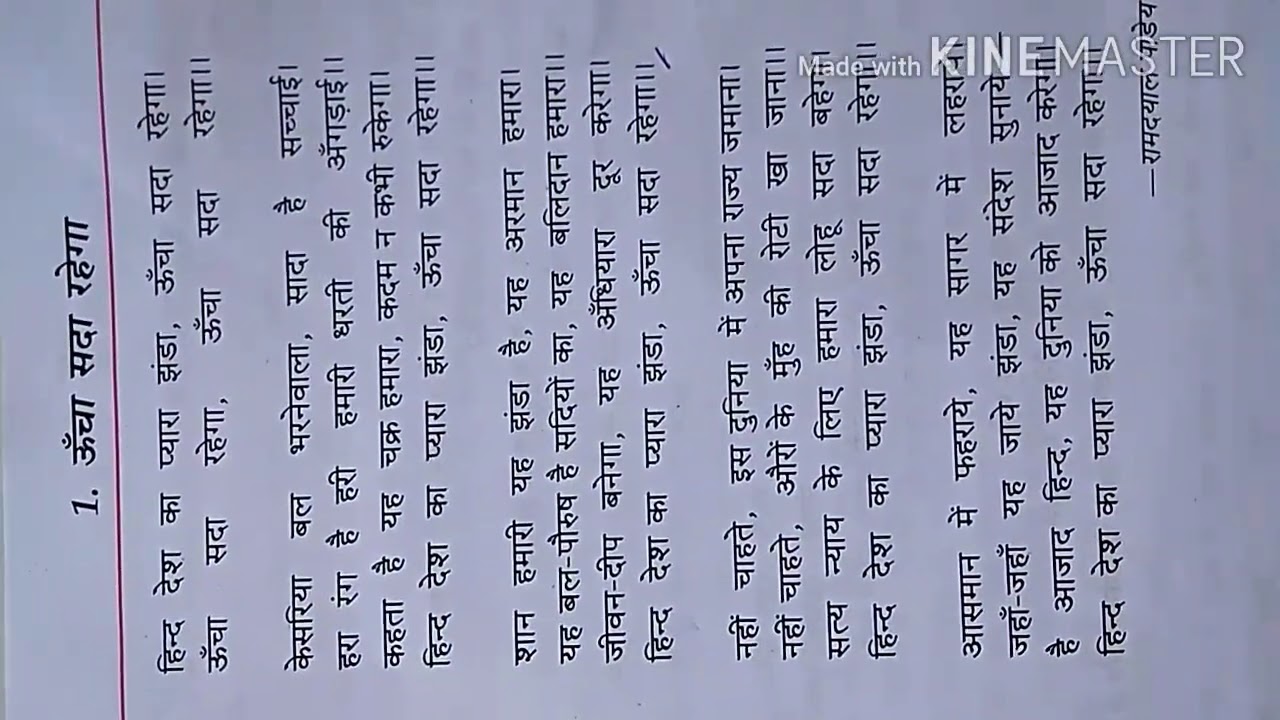 1. ऊँचा सदा रहेगा
हिन्द देश का प्यारा झंडा, ऊँचा सदा रहेगा।
ऊँचा सदा रहेगा, ऊँचा सदा रहेगा।।
केसरिया बल भरनेवाला, सादा है सच्चाई।
हरा रंग है हरी हमारी धरती की अँगड़ाई।।
कहता है यह चक्र हमारा, कदम न कभी रुकेगा।
हिन्द देश का प्यारा झंडा, ऊँचा सदा रहेगा।।
शान हमारी यह झंडा है, यह अरमान हमारा।
यह बल-पौरुष है सदियों का, यह बलिदान हमारा।।
जीवन-दीप बनेगा, यह अँधियारा दूर करेगा।
हिन्द देश का प्यारा झंडा, ऊँचा सदा रहेगा।।
नहीं चाहते, इस दुनिया में अपना राज्य जमाना।
नहीं चाहते, औरों के मुँह की रोटी खा जाना।।
सत्य न्याय के लिए हमारा लोहू सदा बहेगा।
हिन्द देश का प्यारा झंडा, ऊँचा सदा रहेगा।।
आसमान में फहराये, यह सागर में लहराये
जहाँ-जहाँ यह जाये झंडा, यह संदेश सुनाये—
है आजाद हिन्द, यह दुनिया को आजाद करेगा।
हिन्द देश का प्यारा झंडा, ऊँचा सदा रहेगा।।
—रामदयाल पांडेय
Made with KINEMASTER